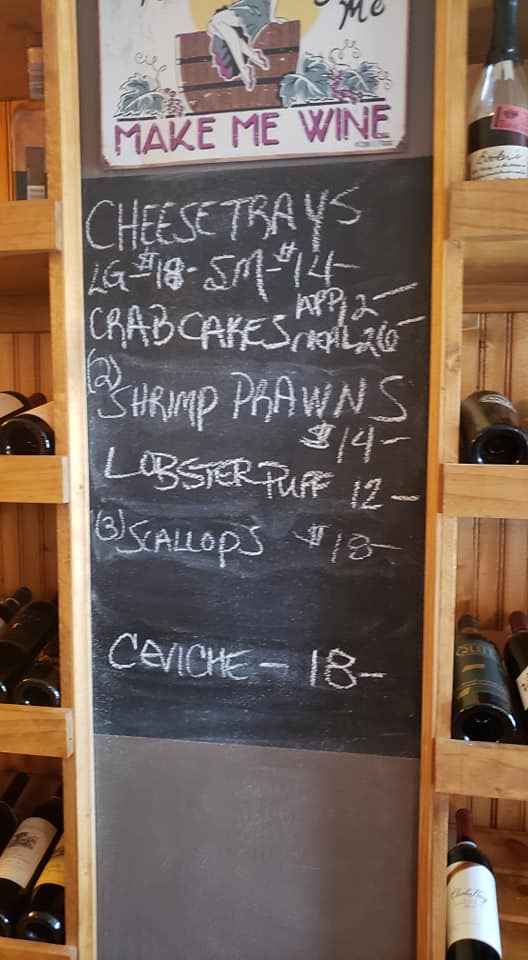 Me
MAKE ME WINE
CHEESE TRAYS
LG-$18- SM-$14-
APP 12-
CRAB CAKES MEAL 26-
(2) SHRIMP PRAWNS
$14-
LOBSTER PUFF 12-
(3) SCALLOPS $18-
CEVICHE - 18-